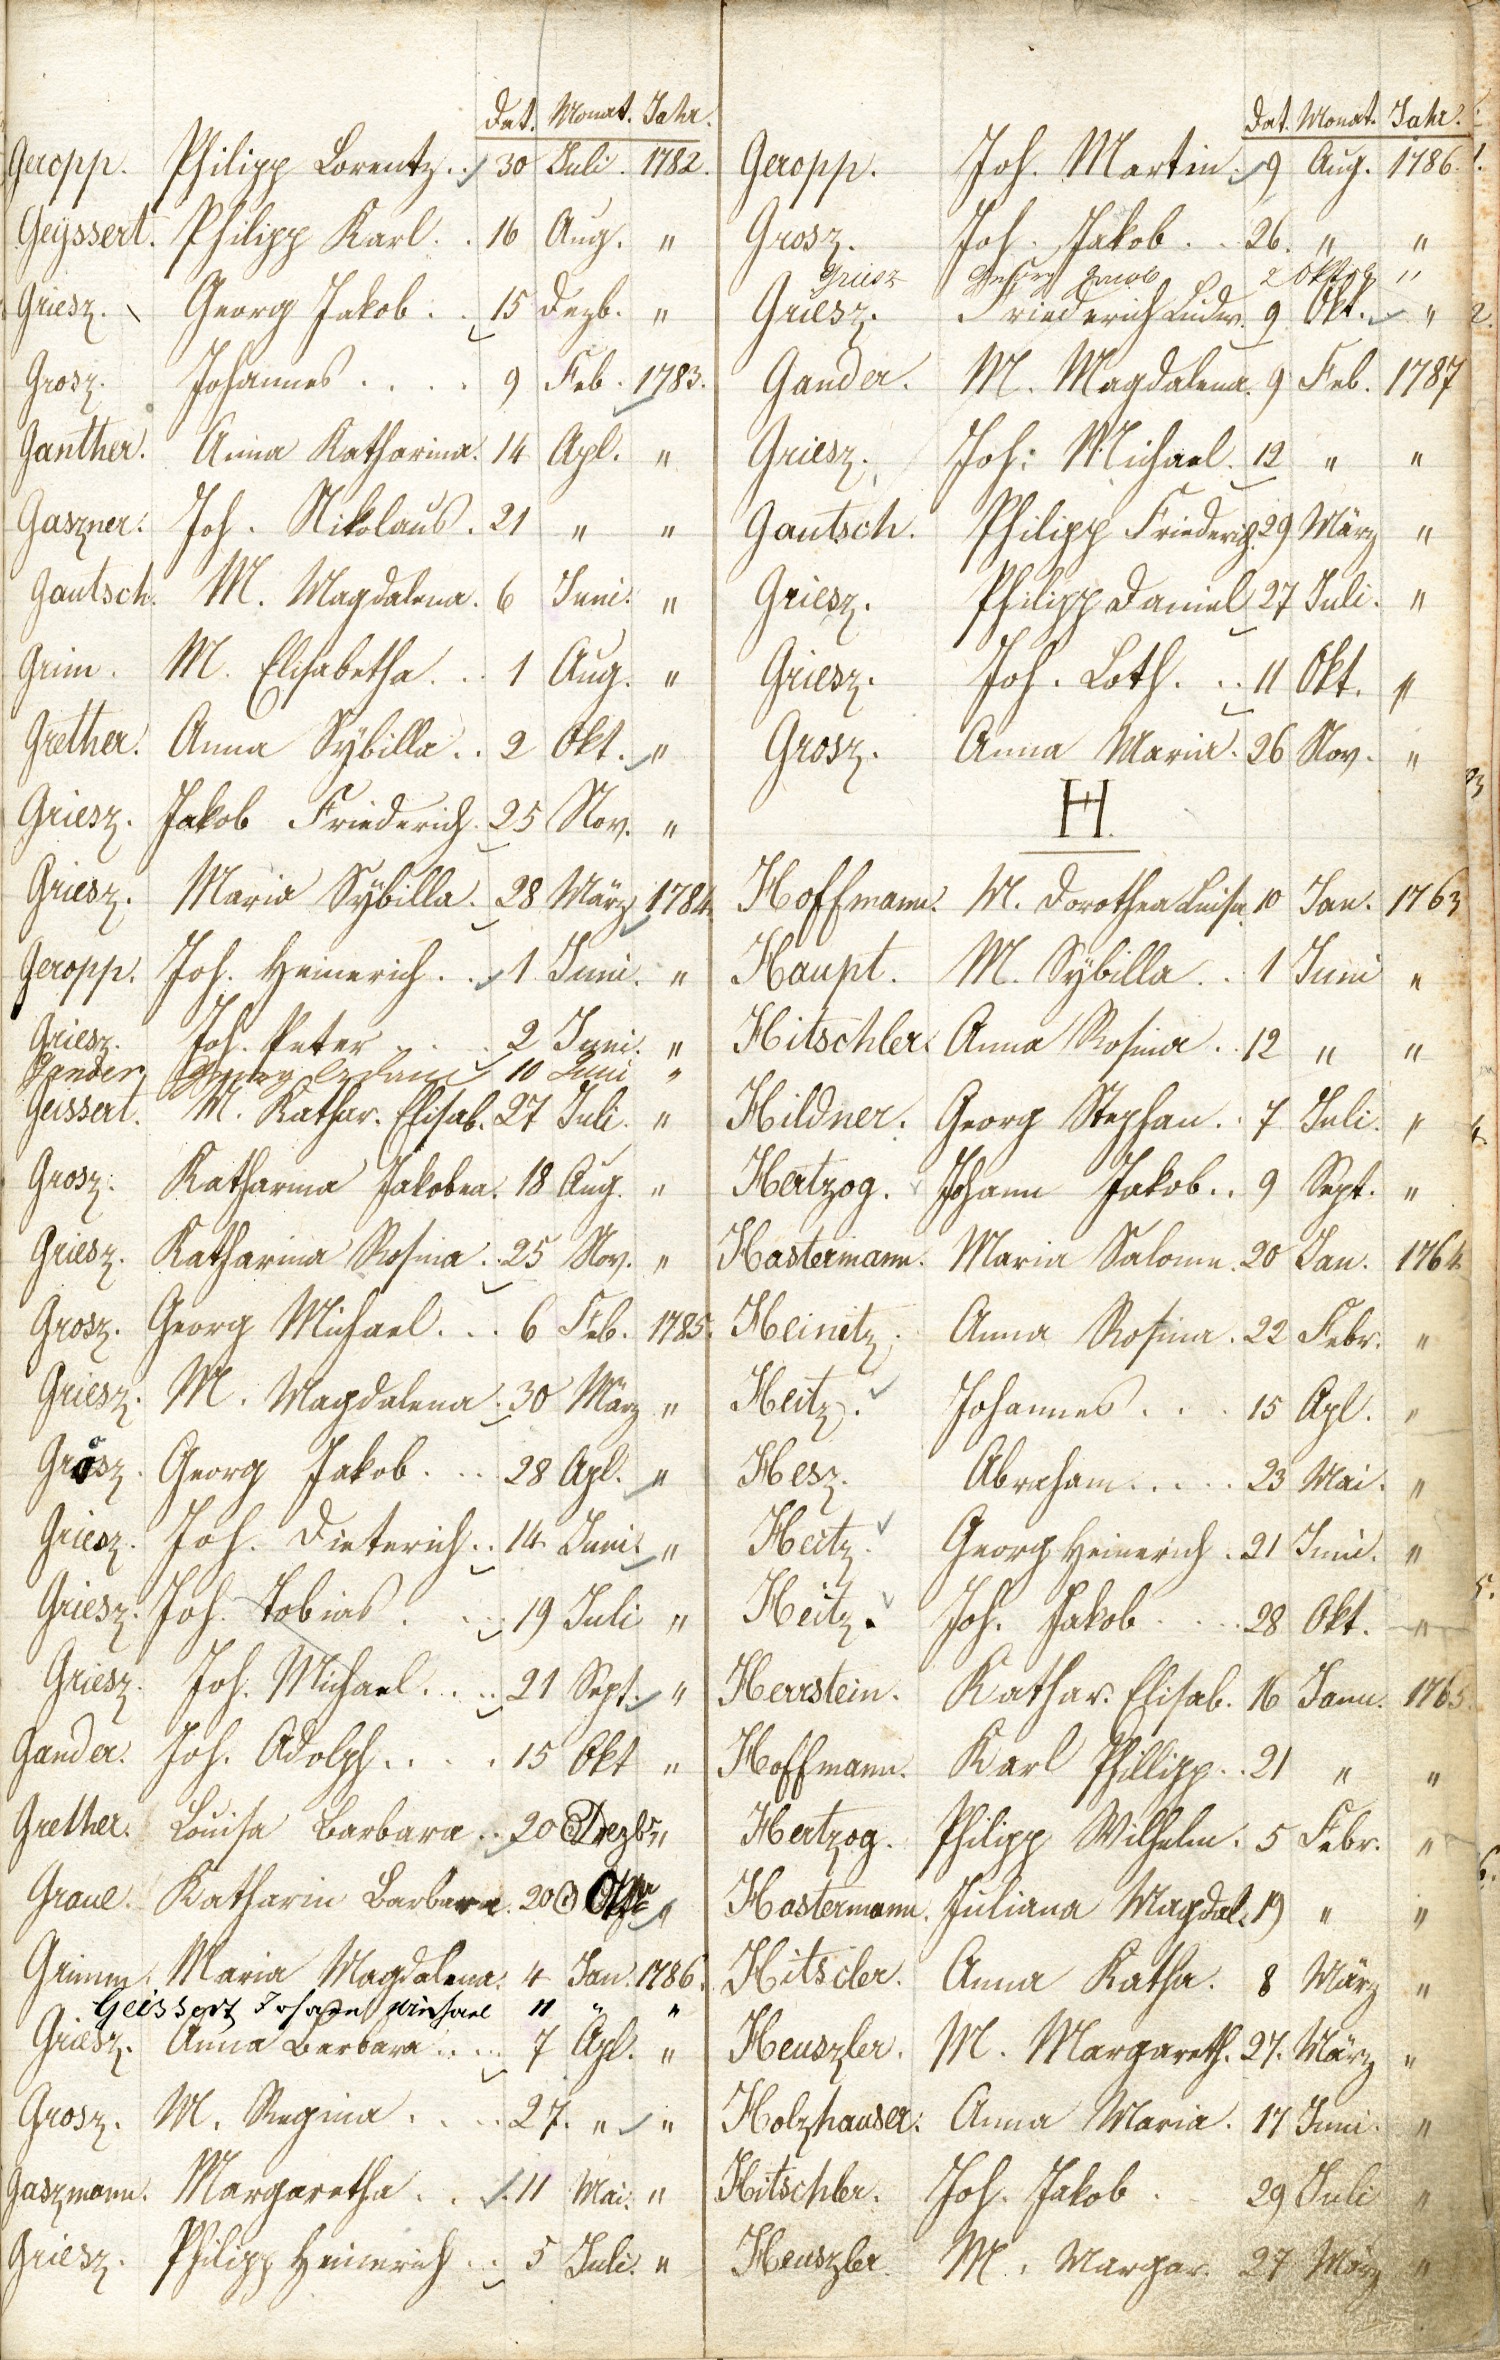 Dat. Monat. Jahr.
Geropp. Philipp Lorentz.. 30 Juli. 1782.
Geyssert. Philipp Karl.. 16 Aug. "
Griesz. Georg Jakob.. 15 Dezb. "
Grosz. Johannes.... 9 Feb. 1783.
Ganther. Anna Katharina. 14 Apl. "
Gaszner. Joh. Nikolaus. 21 " "
Gautsch. M. Magdalena. 6 Juni. "
Grim. M. Elisabetha... 1 Aug. "
Grether. Anna Sÿbilla.. 2 Okt. "
Griesz. Jakob Friederich. 25 Nov. "
Griesz. Maria Sÿbilla. 28 März 1784.
Geropp. Joh. Heinerich.. 1 Juni. "
Griesz. Joh. Peter... 2 Juni. "
Gander Georg 10 Juni "
Geissert. M. Kathar. Elisab. 27 Juli. "
Grosz. Katharina Jakobea. 18 Aug. "
Griesz. Katharina Rosina.. 25 Nov. "
Grosz. Georg Michael... 6 Feb. 1785.
Griesz. M. Magdalena. 30 März "
Grosz. Georg Jakob... 28 Apl. "
Griesz. Joh. Dieterich.. 14 Juni. "
Griesz. Joh. Tobias... 19 Juli "
Griesz. Joh. Michael.... 21 Sept. "
Gander. Joh. Adolph.... 15 Okt "
Grether. Louisa Barbara.. 20 Dezbr "
Graue. Katharin Barbara. 20 "
Grimm. Maria Magdalena. 4 Jan. 1786.
Geissert Johann Michael 11 " "
Griesz. Anna Barbara.... 7 Apl. "
Grosz. M. Regina.... 27. " "
Gaszmann. Margaretha... 11 Mai. "
Griesz. Philipp Heinerich.. 5 Juli. "
Dat. Monat. Jahr.
Geropp. Joh. Martin. 9 Aug. 1786.
Grosz. Joh. Jakob.. 26. " "
Griesz Georg Jacob 2 Oktob "
Griesz. Friederich Ludw. 9 Okt. "
Gander. M. Magdalena. 9 Feb. 1787
Griesz. Joh: Michael. 12 " "
Gautsch. Philipp Friederich. 29 März "
Griesz. Philipp Daniel 27 Juli. "
Griesz. Joh. Loth... 11 Okt. "
Grosz. Anna Maria. 26 Nov. "
H.
Hoffmann. M. Dorothea Luisa. 10 Jan. 1763
Haupt. M. Sÿbilla.. 1 Juni "
Hitschler. Anna Rosina.. 12 " "
Hildner. Georg Stephan.. 7 Juli. "
Hertzog. Johann Jakob.. 9 Sept. "
Hastermann. Maria Salome. 20 Jan. 1764
Heinitz. Anna Rosina. 22 Febr. "
Heitz. Johannes... 15 Apl. "
Hesz. Abraham..... 23 Mai. "
Heitz. Georg Heinerich. 21 Juni. "
Heitz. Joh. Jakob... 28 Okt. "
Herrstein. Kathar. Elisab. 16 Janu. 1765.
Hoffmann. Karl Phillipp.. 21 " "
Hertzog. Philipp Wilhelm. 5 Febr. "
Hastermann. Juliana Magdal. 19 " "
Hitscler. Anna Katha. 8 März "
Heuszler. M. Margareth. 27. März "
Holzhauser. Anna Maria. 17 Juni. "
Hitschler. Joh. Jakob. 29 Juli "
Heuszler. M. Margar. 27 März "